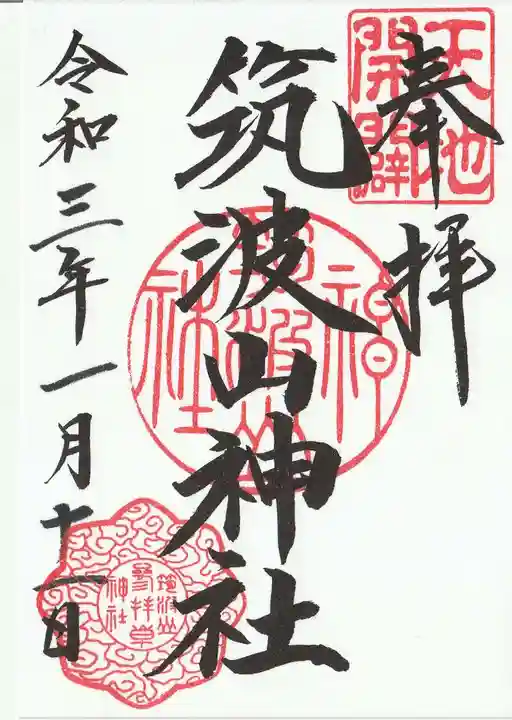 奉拝
天地
開闢
筑波山神社
筑波山
神社
令和三年一月十一日
筑波山
神社